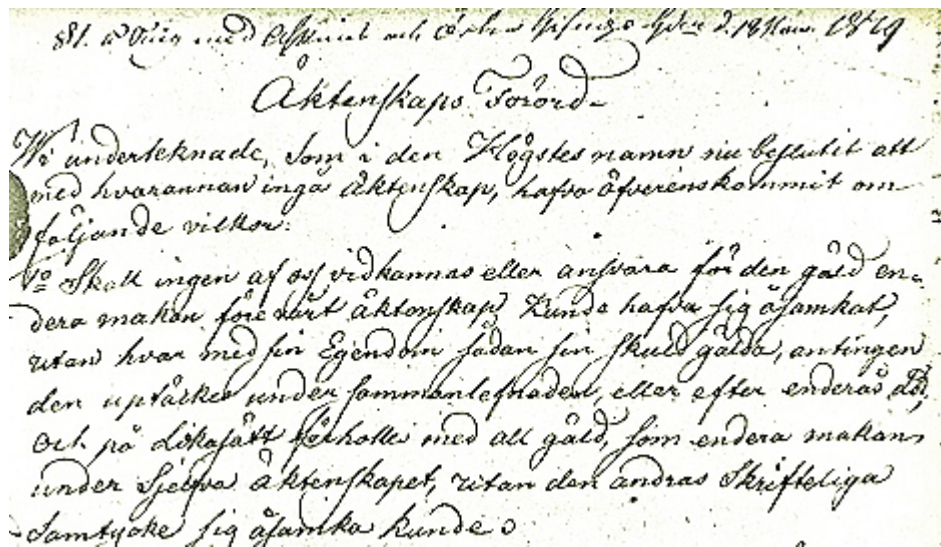 med och d. 18 Nov. 1819
Äktenskaps Förord
Wi underteknade, som i den Högstes namn nu beslutit att
med hvarannan ingå Äktenskap, hafva öfverenskommit om
följande vilkor:
1o Skall ingen af oss vidkännas eller ansvara för den gäld en-
dera makan före vårt äktenskap kunde hafva sig åsamkat,
utan hvar med sin Egendom sådan sin skuld gälda, antingen
den uptäckes under sammanlefnaden, eller efter enderas död,
Och på lika sätt förhålles med all gäld, som endera makan
under Sjelfva äktenskapet, utan den andras Skrifteliga
Samtycke sig åsamka kunde.